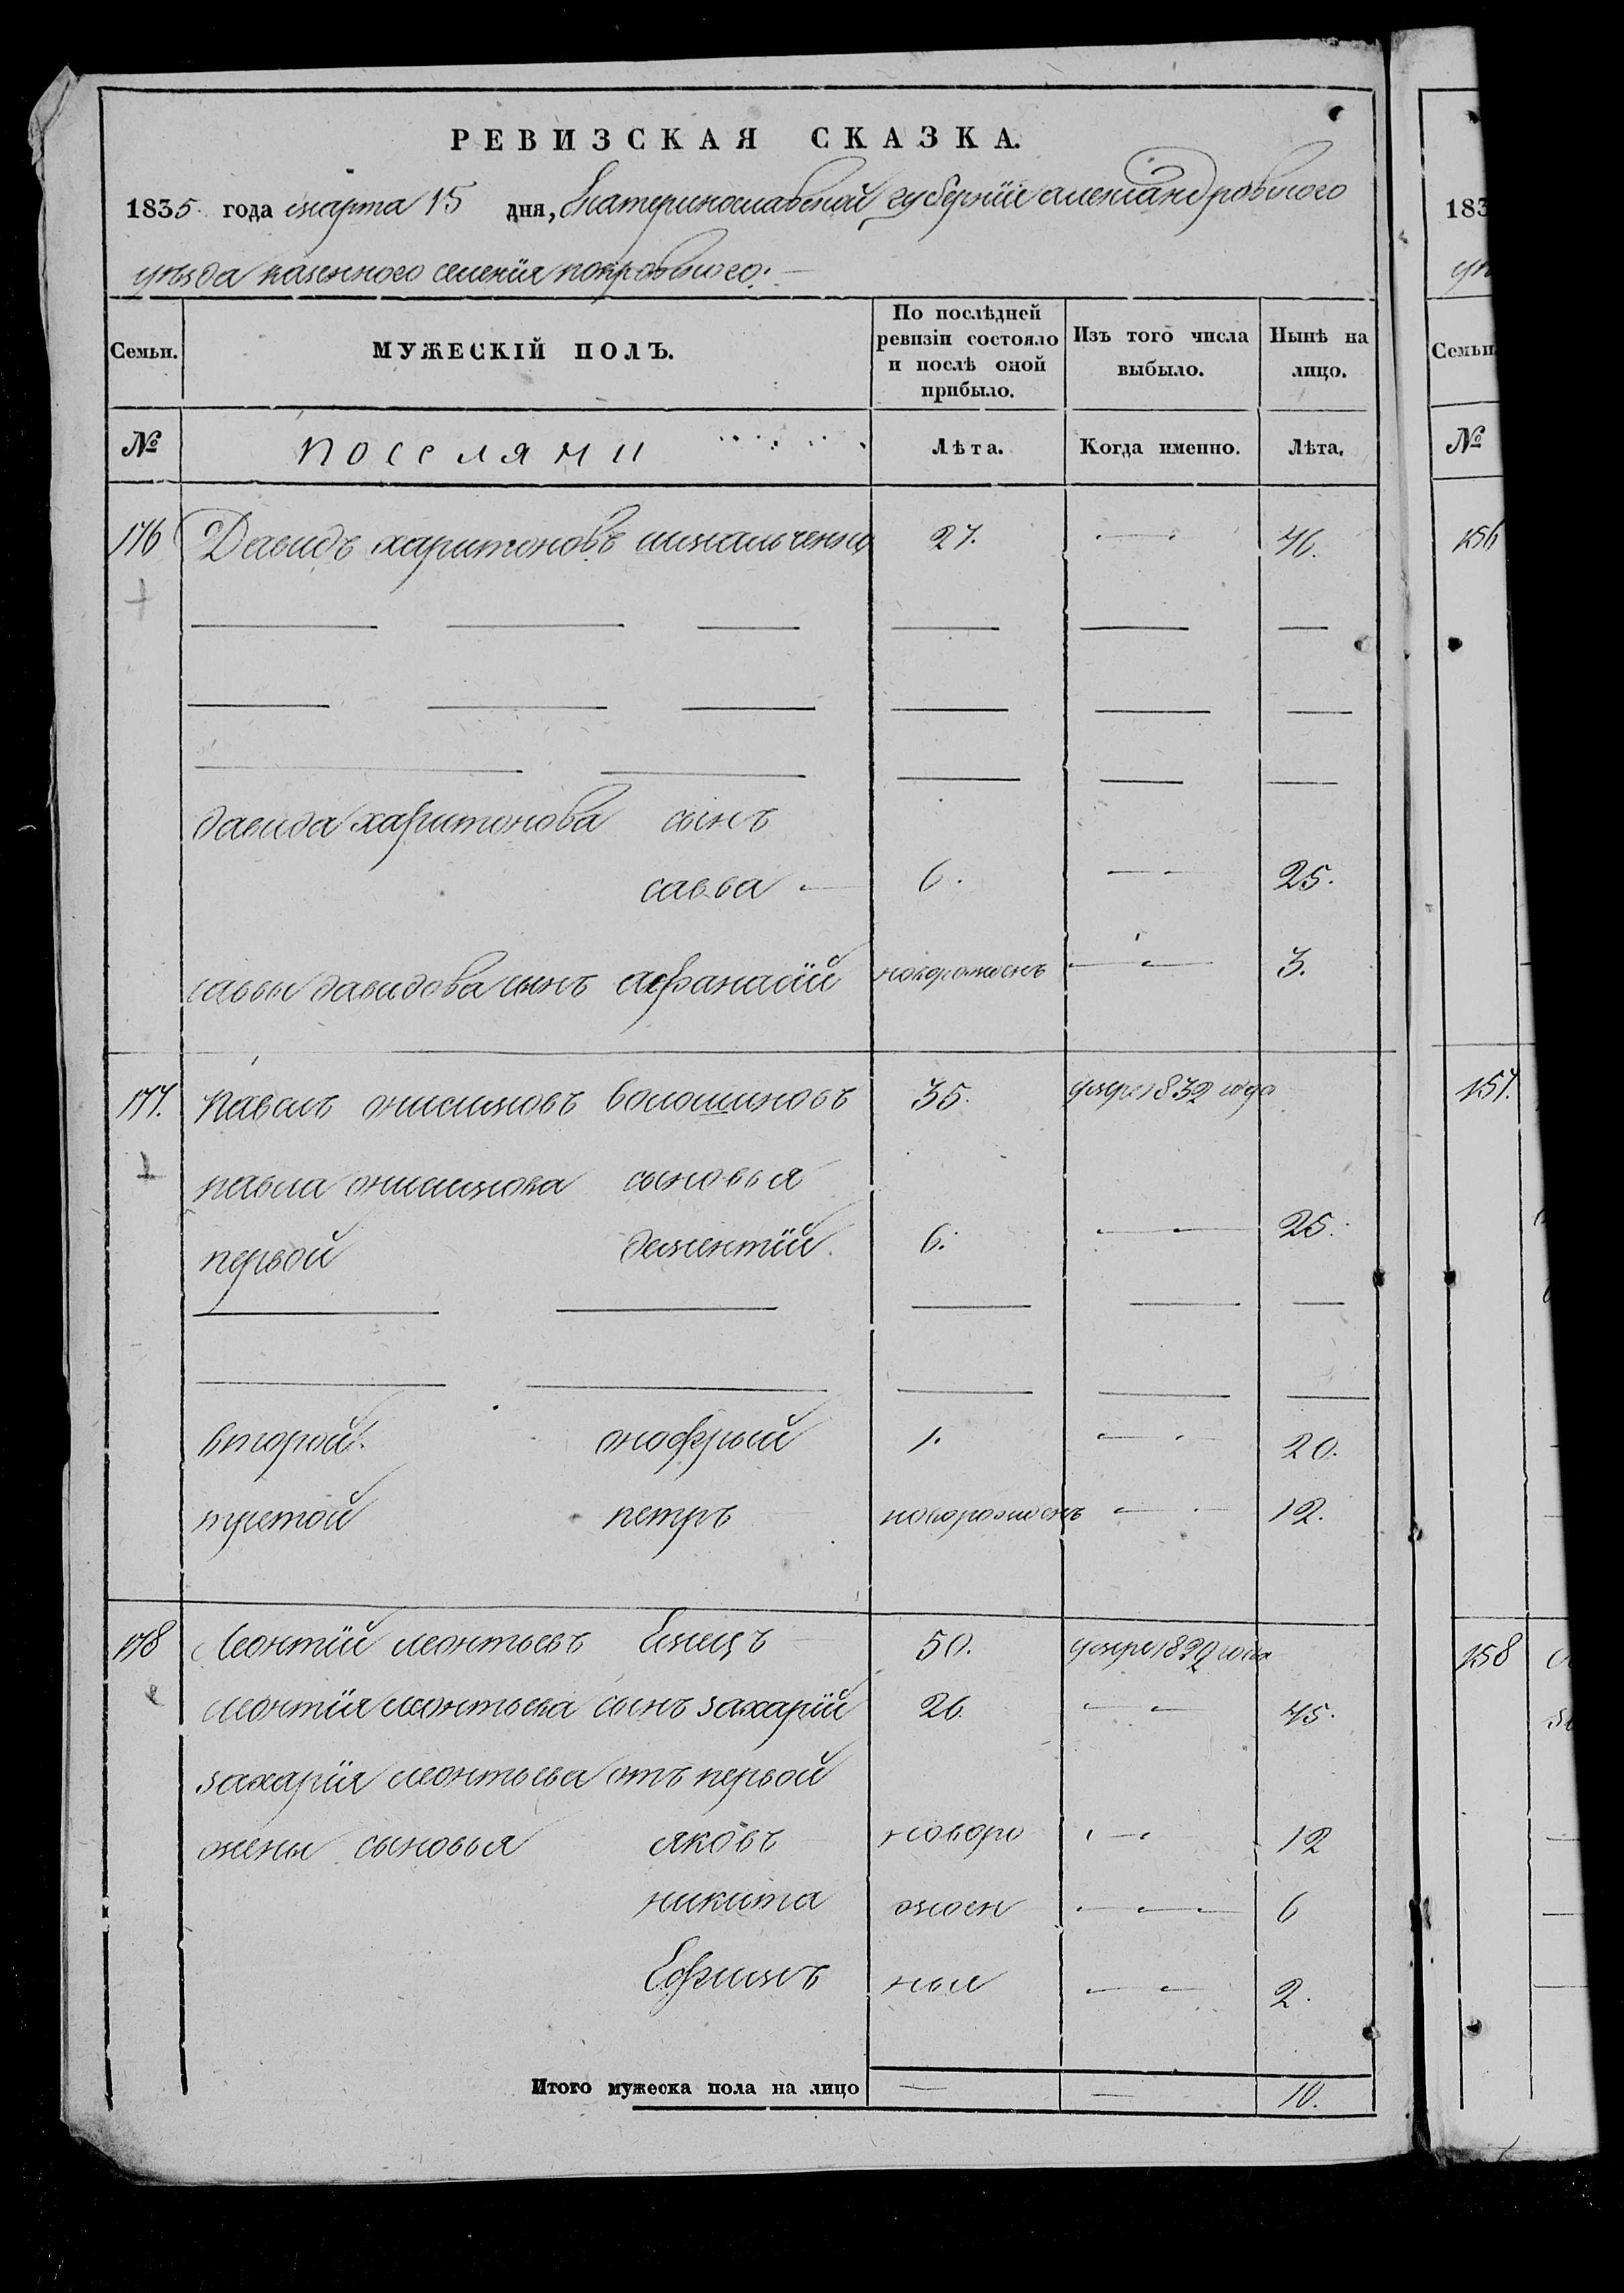 РЕВИЗСКАЯ СКАЗКА.
1835 года марта 15 дня, Екатеринославской губернїи александровского
уѣзда казенного селенїя покровского.
Семьи. МУЖЕСКІЙ ПОЛЪ. По послѣдней ревизіи состояло и послѣ оной прибыло. Изъ того числа выбыло. Нынѣ на лицо.
№ поселяни Лѣта. Когда именно. Лѣта.
176 Давидъ харитоновъ 27. 46.
давида харитонова сынъ
савва 6. 25.
саввы давидова сынъ афанасїй новорожденъ 3.
177. павелъ онисимовъ волошиновъ 35. умре 1832 года
павла онисимова сыновья
первой дементїй 6. 25.
второй онофрый 1. 20.
третой петръ новорожденъ 12.
178 Леонтїй леонтьевъ 50. умре 1832 года
леонтїя леонтьева сынъ захарїй 26. 45.
захарїя леонтьева отъ первой
жены сыновья яковъ новоро 12
никита жден 6
Ефимъ ныя 2.
Итого мужеска пола на лицо 10.
183
Семьи
№
156
157.
158